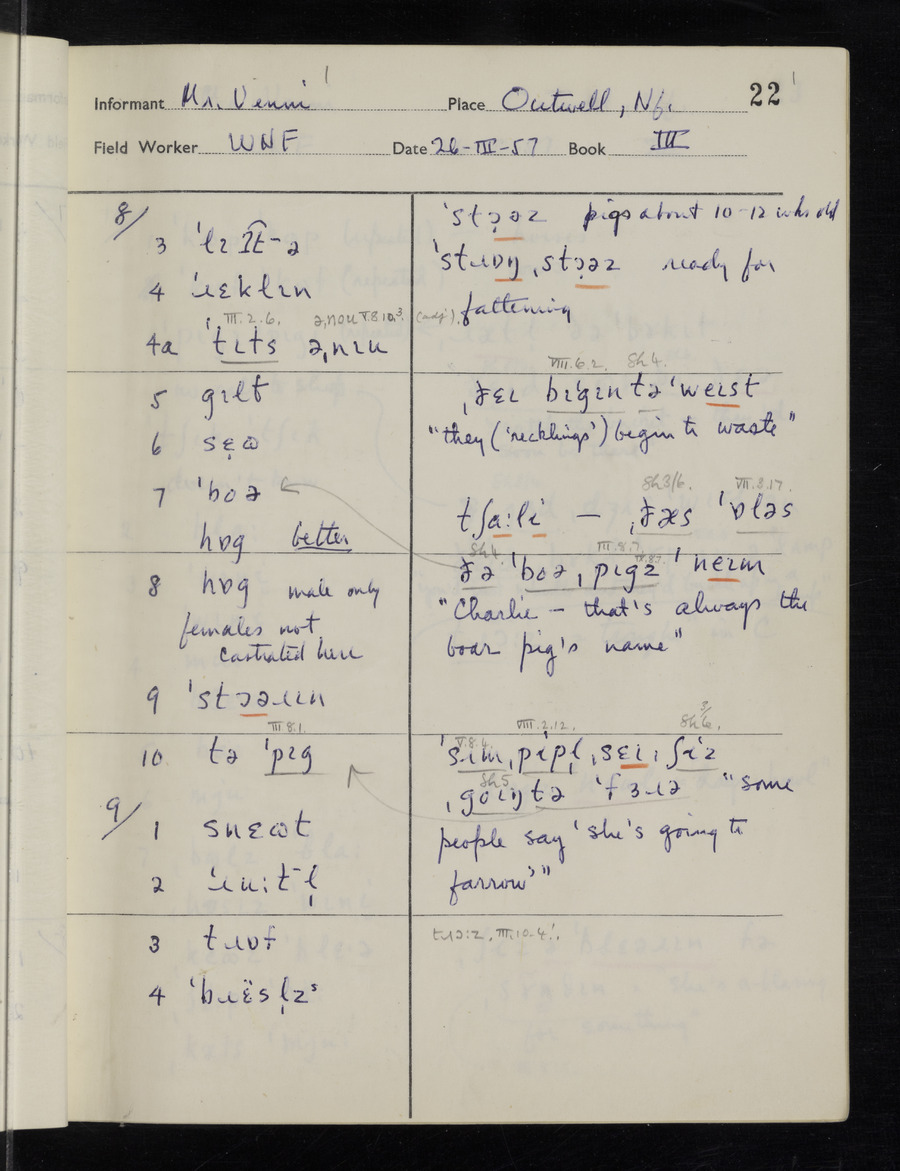 Informant Mr. Venni Place Outwell, Nf. 22
Field Worker WNF Date 26-III-57 Book III
8/
3
4 ˈɹɛklɪn
III.2.6.
4a ˈtɪts
5 gɪlt
6
7 ˈbɔə
hɒg better
8 hɒg male only
females not
castrated here
9 ˈstɔəɹɪn
III.8.1.
10. tə ˈpɪg
9/
1 snɛʊt
2
3 tɹɒf
4
ˈstɔəz pigs about 10-12 wks old
ˈstɹɒŋ ˌstɔəz ready for
fattening
VIII.6.2. Sh4.
ˌðɛɪ bɪgɪn tə ˈweɪst
"they ('recklings') begin to waste"
Sh3/6. VII.3.17.
tʃaːli – ˌðæs ˈɒləs
Sh4. III.8.7.
ðə ˈbɔə ˌpɪgz ˈneɪm
"Charlie – that's always the
boar pig's name"
VIII.2.12.
V.8.4.
Sh5.
"some
people say 'she's going to
farrow'"
III.10.4.